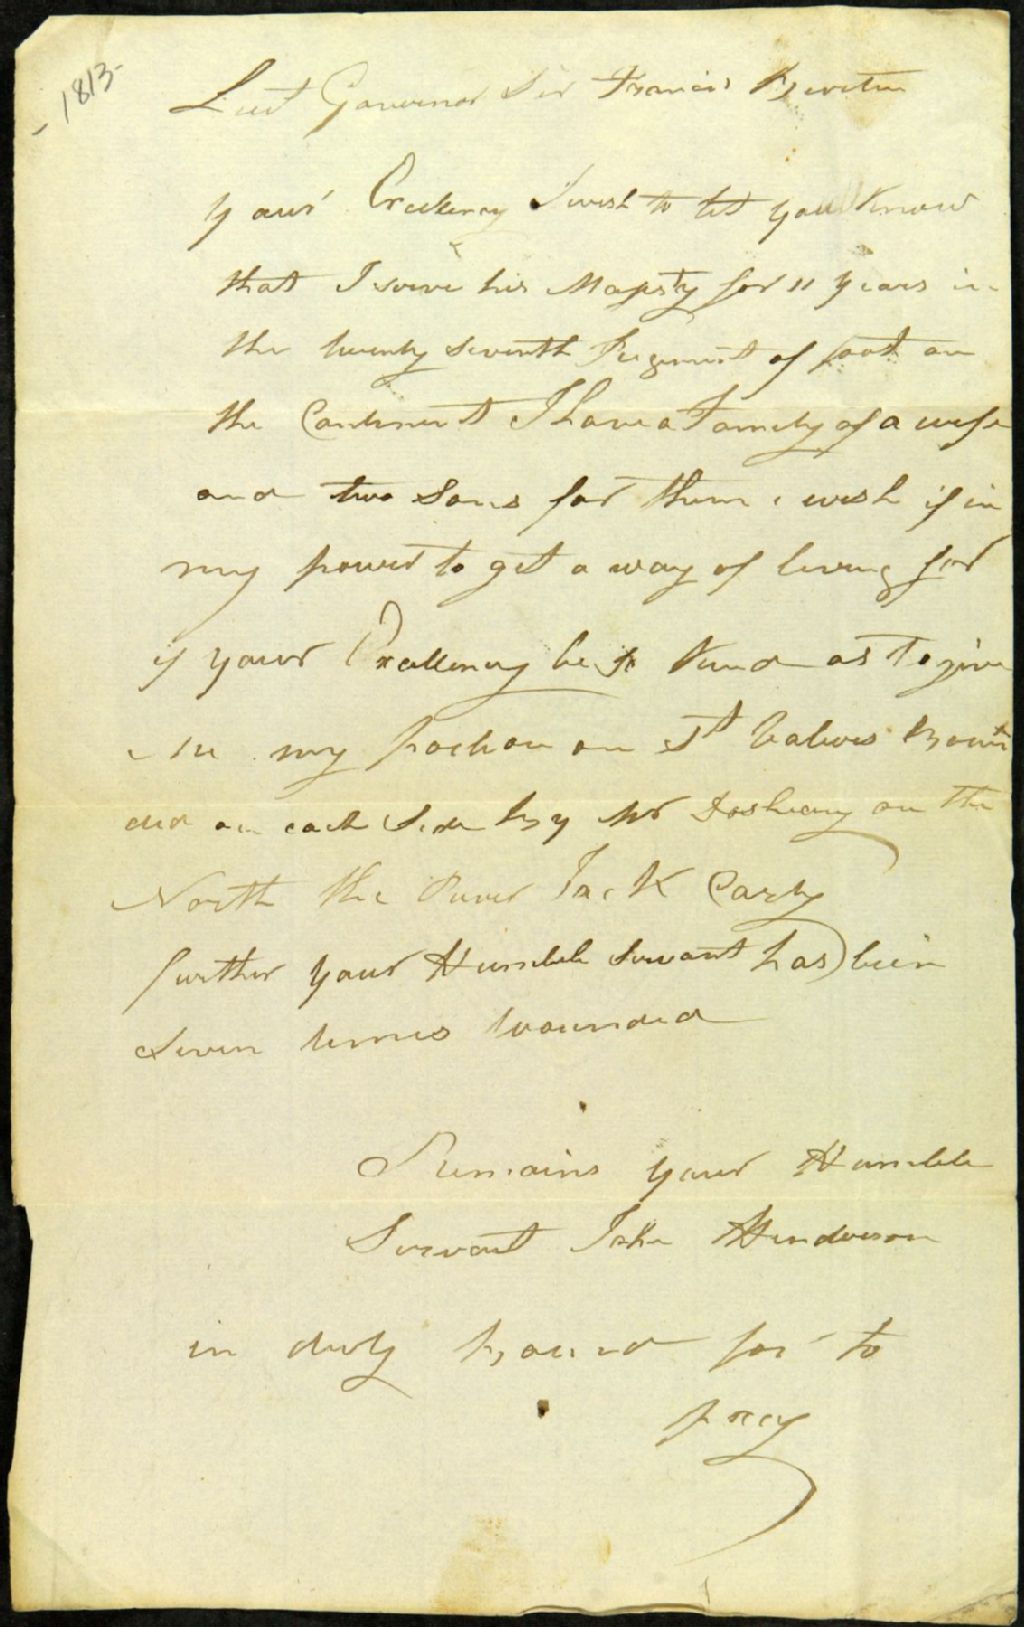 1813-
Liut Governor Sir Francis Burton
your Excelency I wish to let you Know
that I serve his Majesty for 11 years in
the twenty seventh Regment of foot on
the Continent I have a Family of a wife
and two Sons for them i wish if in
my power to get a way of living for
if your Excellency be so Kind as to give
me my on St Bound
ded on each Side by Mr on the
North the River Jack Carty
further your Humble Servant has been
Seven times wounded
Remains your Humble
Servant John Henderson
in duty bound for to
pray